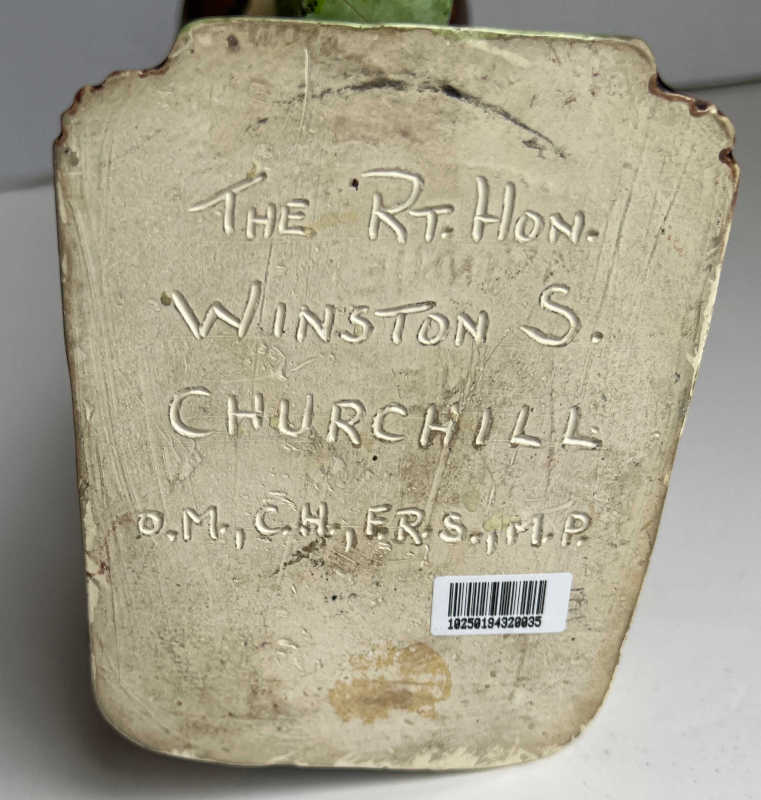 THE RT. HON.
WINSTON S.
CHURCHILL
O.M., C.H., F.R.S., M.P.
10250194320035